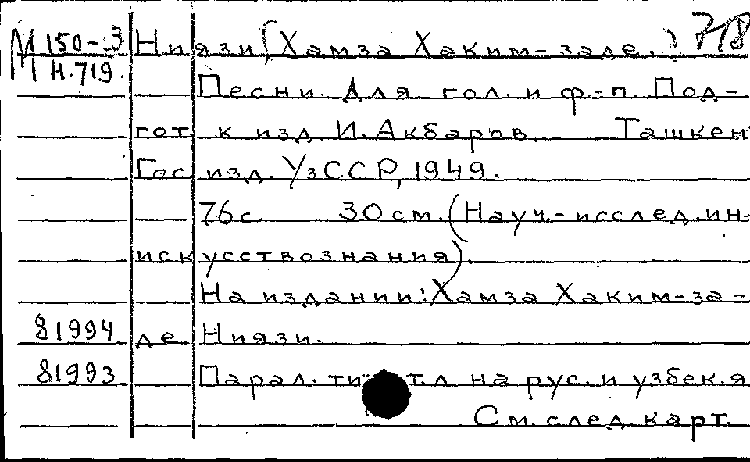 М 150-3 Ниязи (Хамза Хаким-заде.) 718
I Н.719.
Песни. Для гол. и ф-п. Под-
гот к изд И. Акбаров. Ташкен
Гос изд. УзССР, 1949.
76 с 30 см. (Науч.-исслед. ин
искусствознания).
На издании: Хамза Хаким-за-
81994 де Ниязи.
81993 Парал. тит т.л на рус. и узбек. я
См. след. карт.